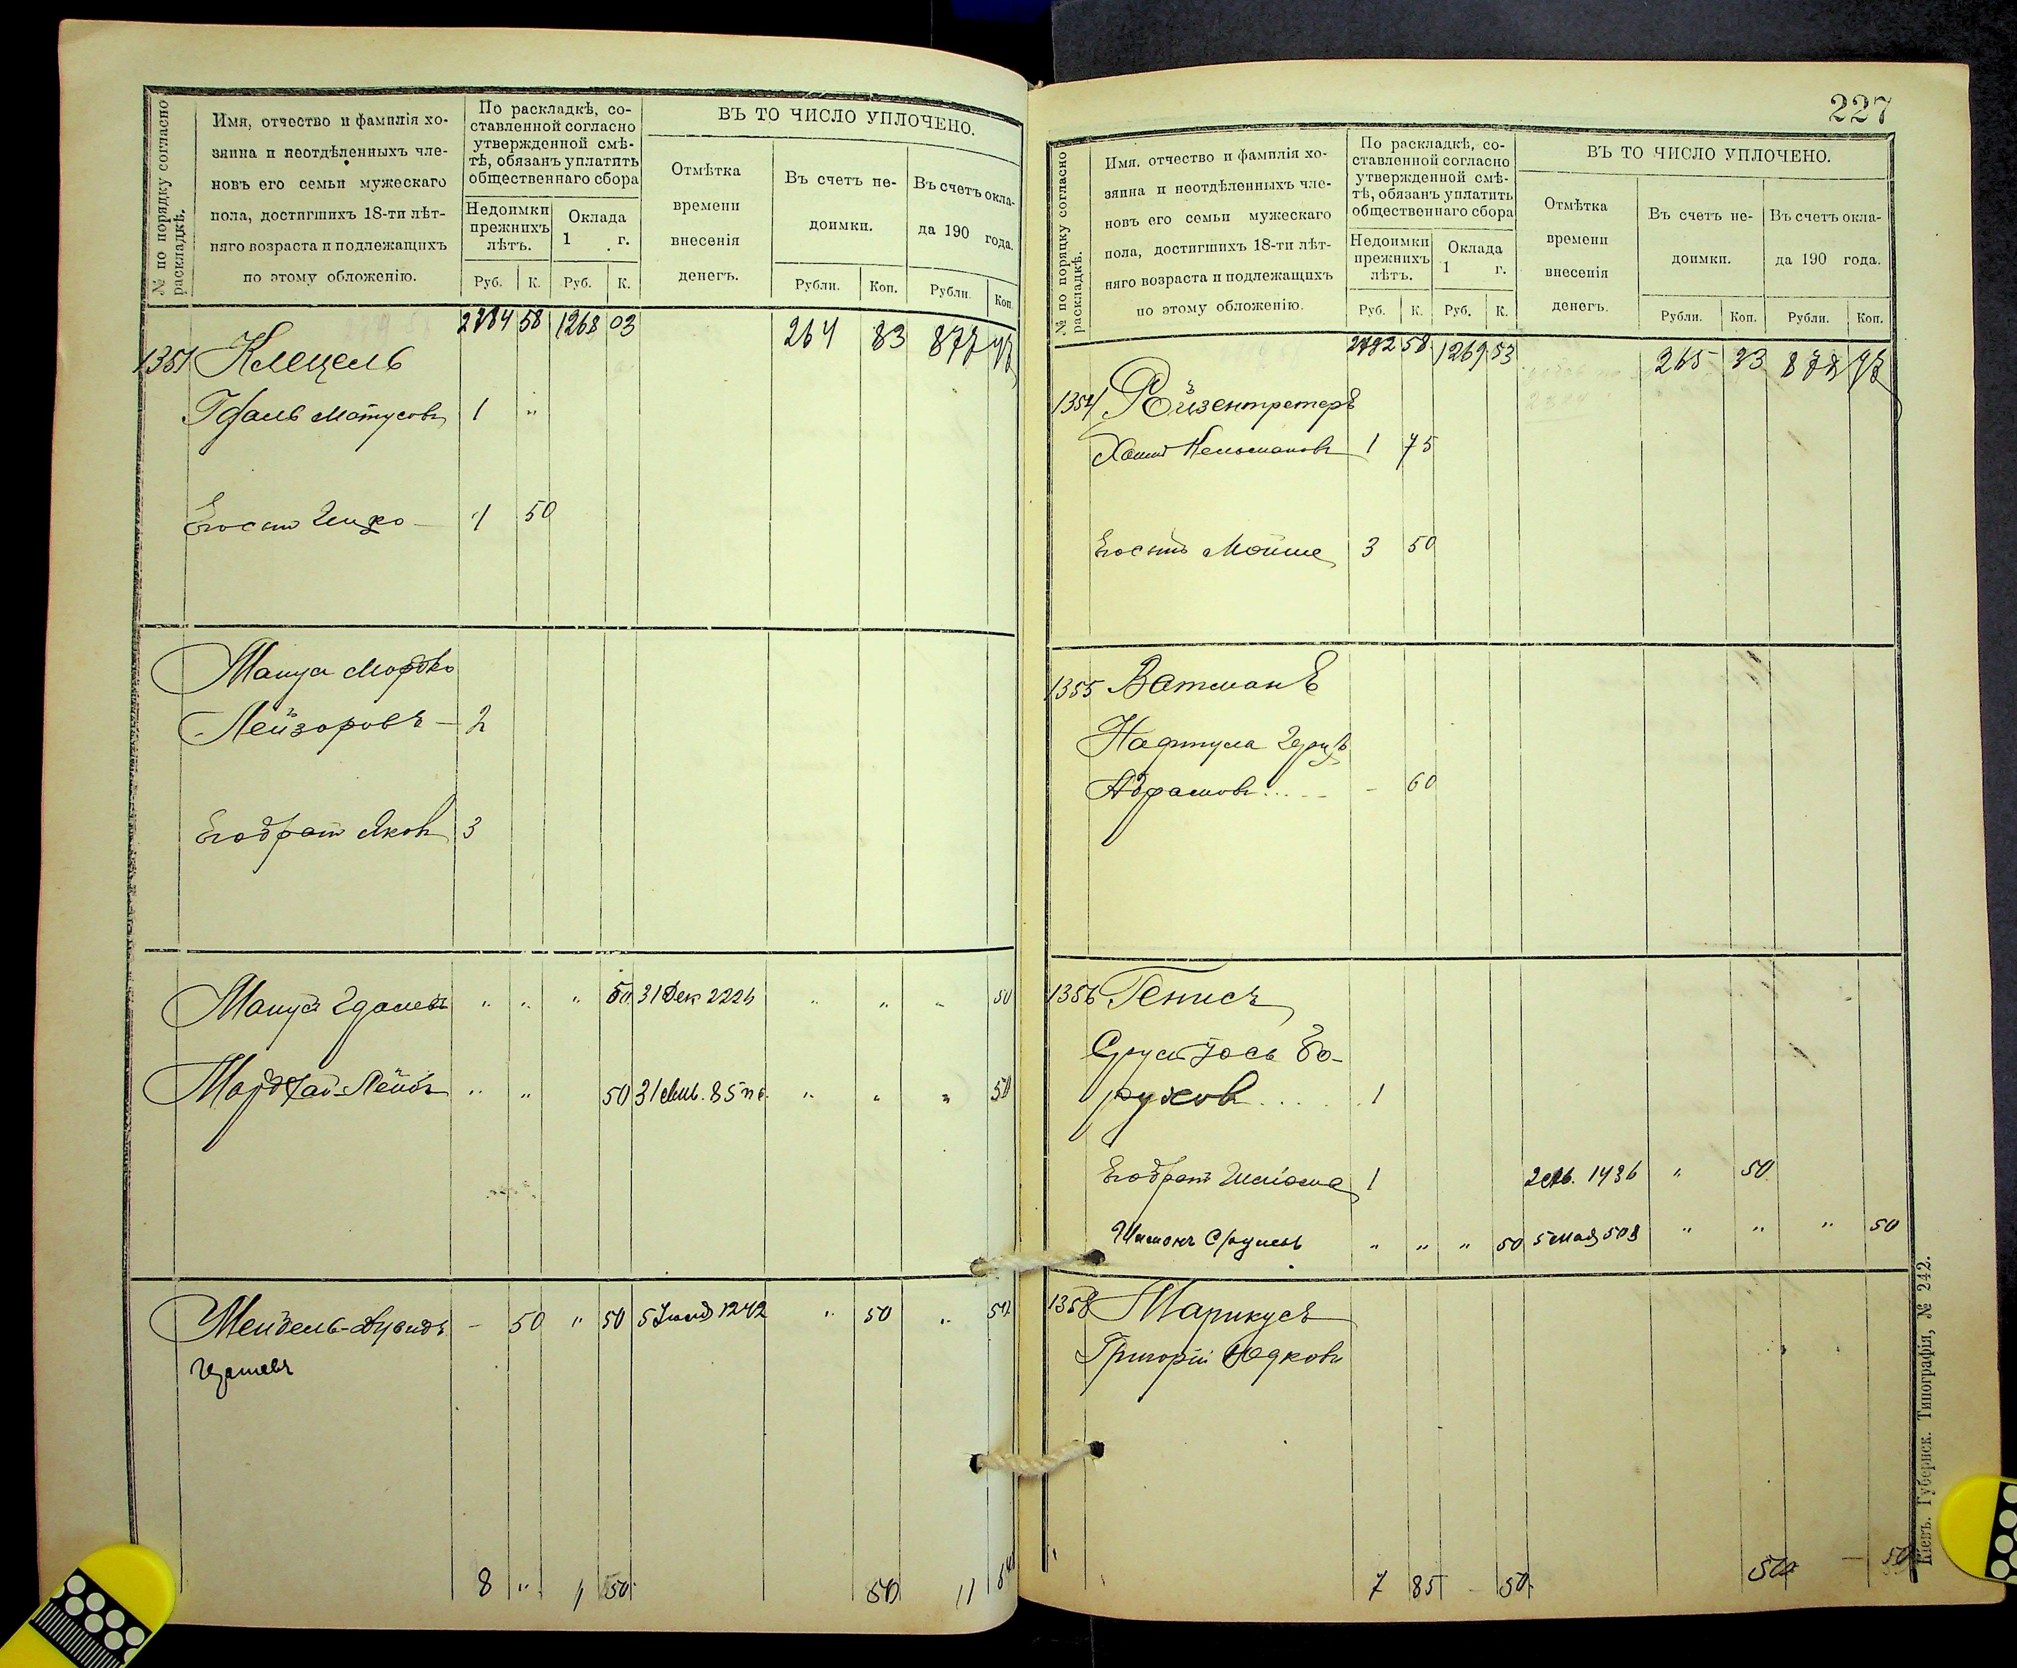 № по порядку согласно раскладкѣ.
Имя, отчество и фамилія хо-
зяина и неотдѣленныхъ чле-
новъ его семьи мужескаго
пола, достигшихъ 18-ти лѣт-
няго возраста и подлежащихъ
по этому обложенію.
По раскладкѣ, со-
ставленной согласно
утвержденной смѣ-
тѣ, обязанъ уплатить
общественнаго сбора
Недоимки
прежнихъ
лѣтъ.
Оклада
1 г.
Руб. К. Руб. К.
ВЪ ТО ЧИСЛО УПЛОЧЕНО.
Отмѣтка
времени
внесенія
денегъ.
Въ счетъ не-
доимки.
Въ счетъ окла-
да 190 года.
Рубли. Коп. Рубли. Коп.
58 1268 03 264 83 877
1351
Матусовъ 1 "
Его сынъ Ицко 1 50
Мордко
Лейзоровъ 2
Его братъ Яковъ 3
" " " 50 31 Дек 2226 " " " 50
Мордхай-Лейбъ " " 50 31 85 " " " 50
- 50 " 50 5 1242 " 50 " 50
8 " 1 50 50 1
227
№ по порядку согласно раскладкѣ.
Имя, отчество и фамилія хо-
зяина и неотдѣленныхъ чле-
новъ его семьи мужескаго
пола, достигшихъ 18-ти лѣт-
няго возраста и подлежащихъ
по этому обложенію.
По раскладкѣ, со-
ставленной согласно
утвержденной смѣ-
тѣ, обязанъ уплатить
общественнаго сбора
Недоимки
прежнихъ
лѣтъ.
Оклада
1 г.
Руб. К. Руб. К.
ВЪ ТО ЧИСЛО УПЛОЧЕНО.
Отмѣтка
времени
внесенія
денегъ.
Въ счетъ не-
доимки.
Въ счетъ окла-
да 190 года.
Рубли. Коп. Рубли. Коп.
2792 58 1269 53 265 33 878
1354 Ройзентретеръ
Кельмановъ 1 75
Его сынъ Мойше 3 50
1355 Ватманъ
Нафтула Гершъ
Абрамовъ - 60
1356 Генисъ
Сруль Іось Бо-
руховъ 1
Его братъ 1 1436 " 50
Шимонъ Срулевъ " " " 50 5 мая 503 " " " 50
1358 Маркусъ
Григорій Юдковъ
7 85 - 50 50 - 50
Кіевъ. Губернск. Типографія, № 242.